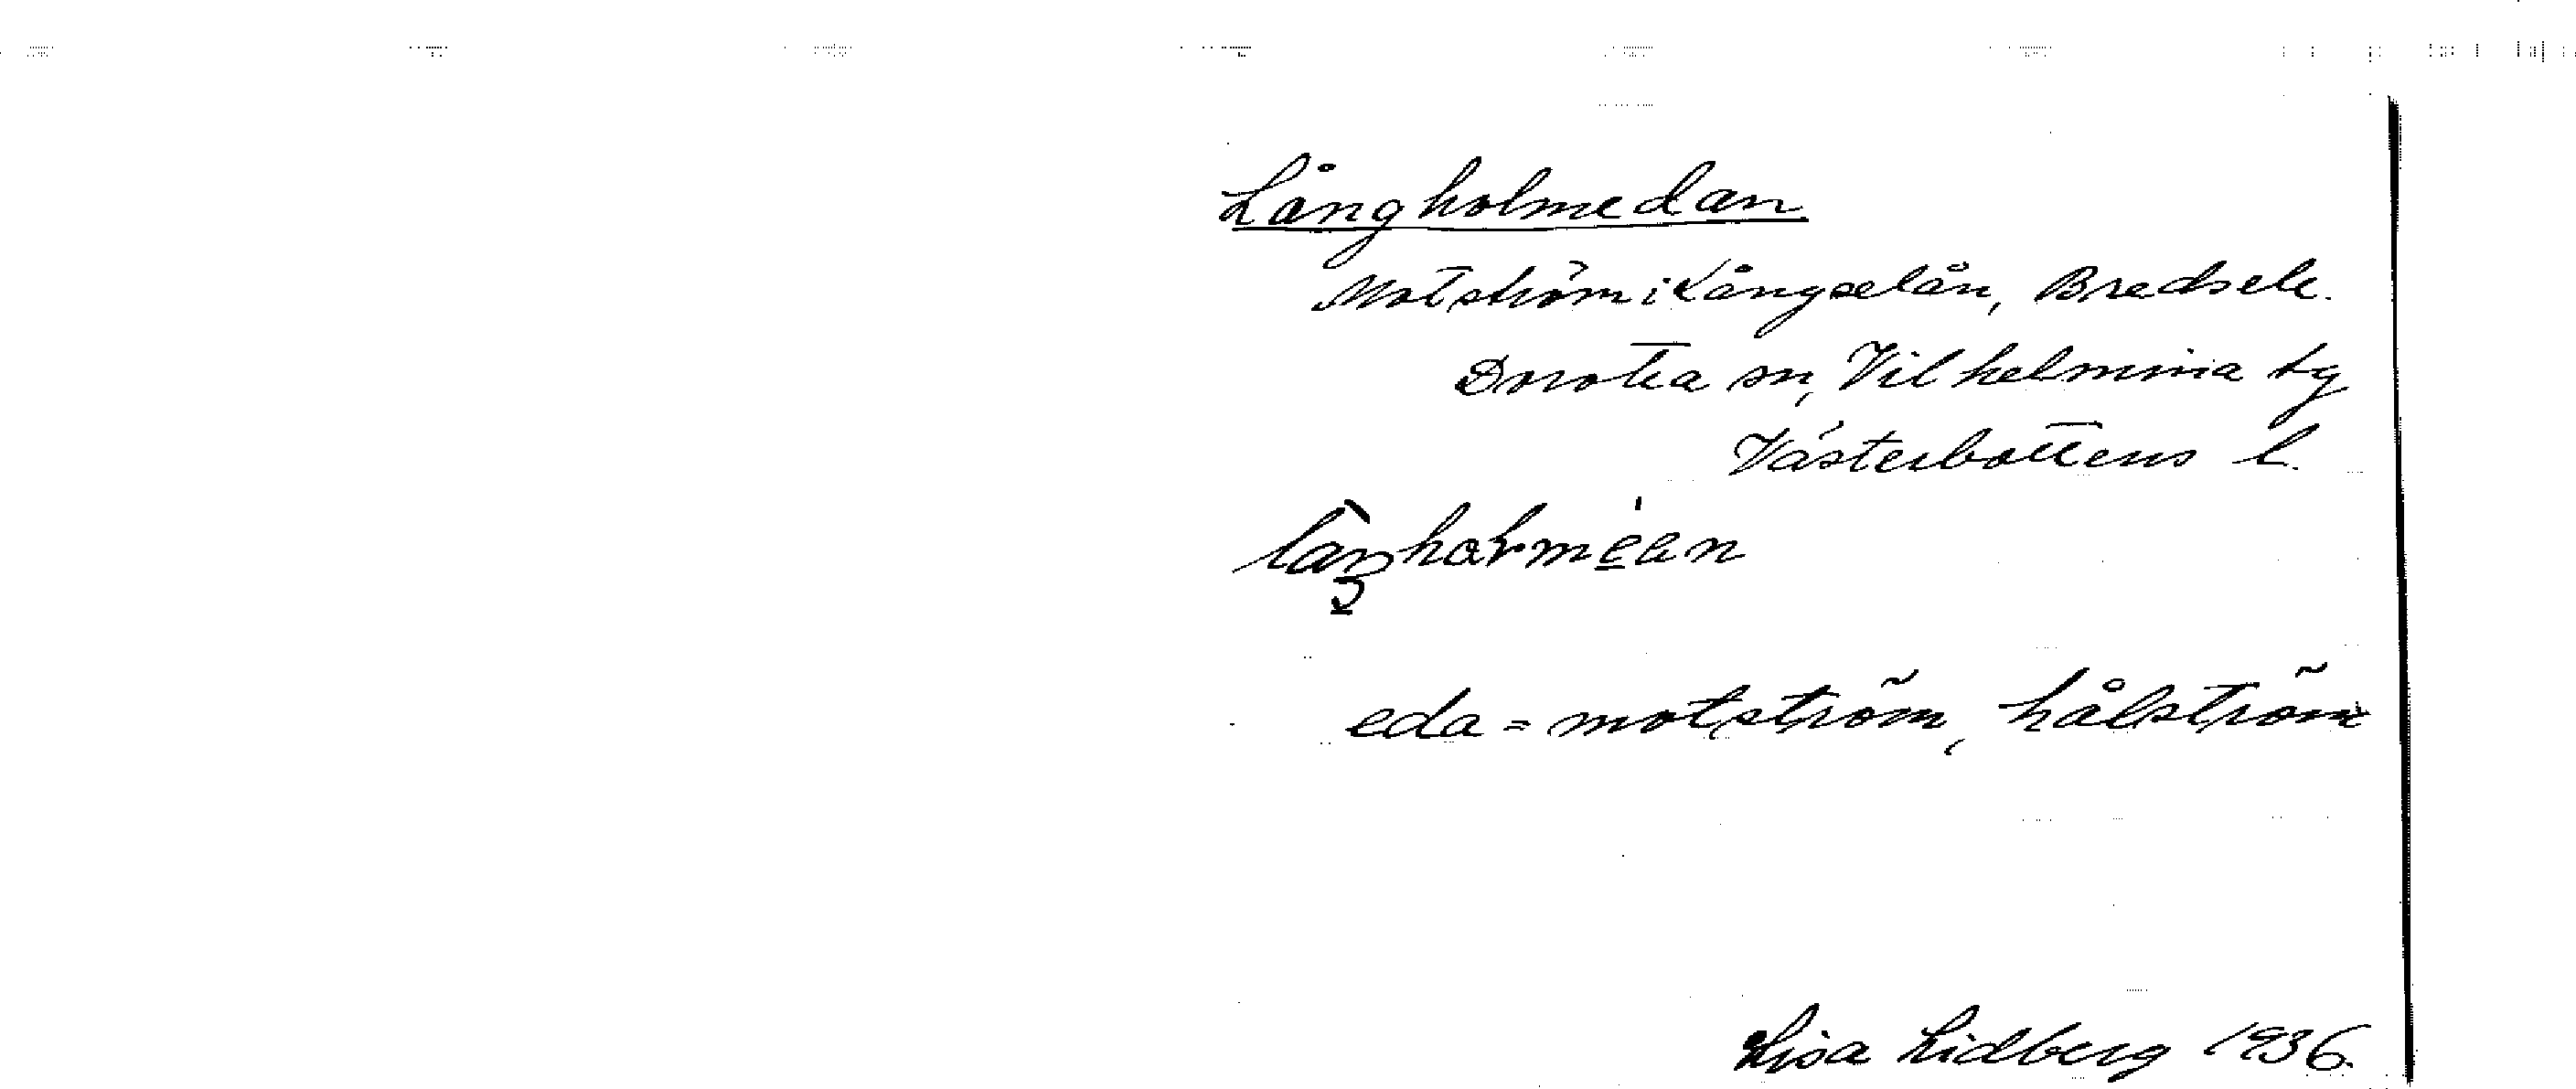 Långholmedan
Motström i Långselån, Bredsele.
Dorotea sn, Vilhelmina tg
Västerbottens l.
eda = motström, hålström
Lisa Lidberg 1936.